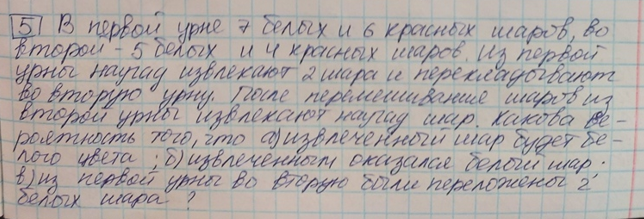 5) В первой урне 7 белых и 6 красных шаров, во
второй - 5 белых и 4 красных шаров. Из первой
урны наугад извлекают 2 шара и перекладывают
во вторую урну. После перемешивание шаров из
второй урны извлекают наугад шар. Какова ве-
роятность того, что а) извлеченный шар будет бе-
лого цвета; б) извлеченным оказался белый шар.
в) из первой урны во вторую были переложены 2
белых шара?